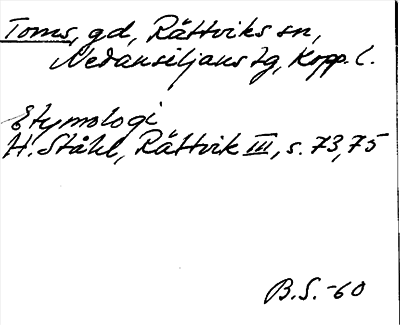 Toms, gd, Rättviks sn,
Nedansiljans tg, Kopp. l.
Etymologi
H. Ståhl, Rättvik III, s. 73, 75
B.S. -60